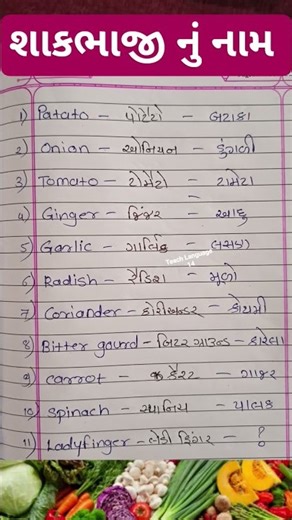 શાકભાજી નું નામ
1) Patato – પોટેટો – બટાકા
2) Onion – ઓનિયન – ડુંગળી
3) Tomato – ટોમેટો – ટામેટા
4) Ginger – જિંજર – આદુ
5) Garlic – ગાર્લિક – લસણ
Teach Language
6) Radish – રેડિશ – મૂળો
7) Coriander – કોરીઅન્ડર – કોથમી
8) Bitter gourd – બિટર ગાઉન્ડ – કારેલા
9) carrot – કેરેટ – ગાજર
10) Spinach – સ્પાનિચ – પાલક
11) Ladyfinger – લેડી ફિંગર – ?